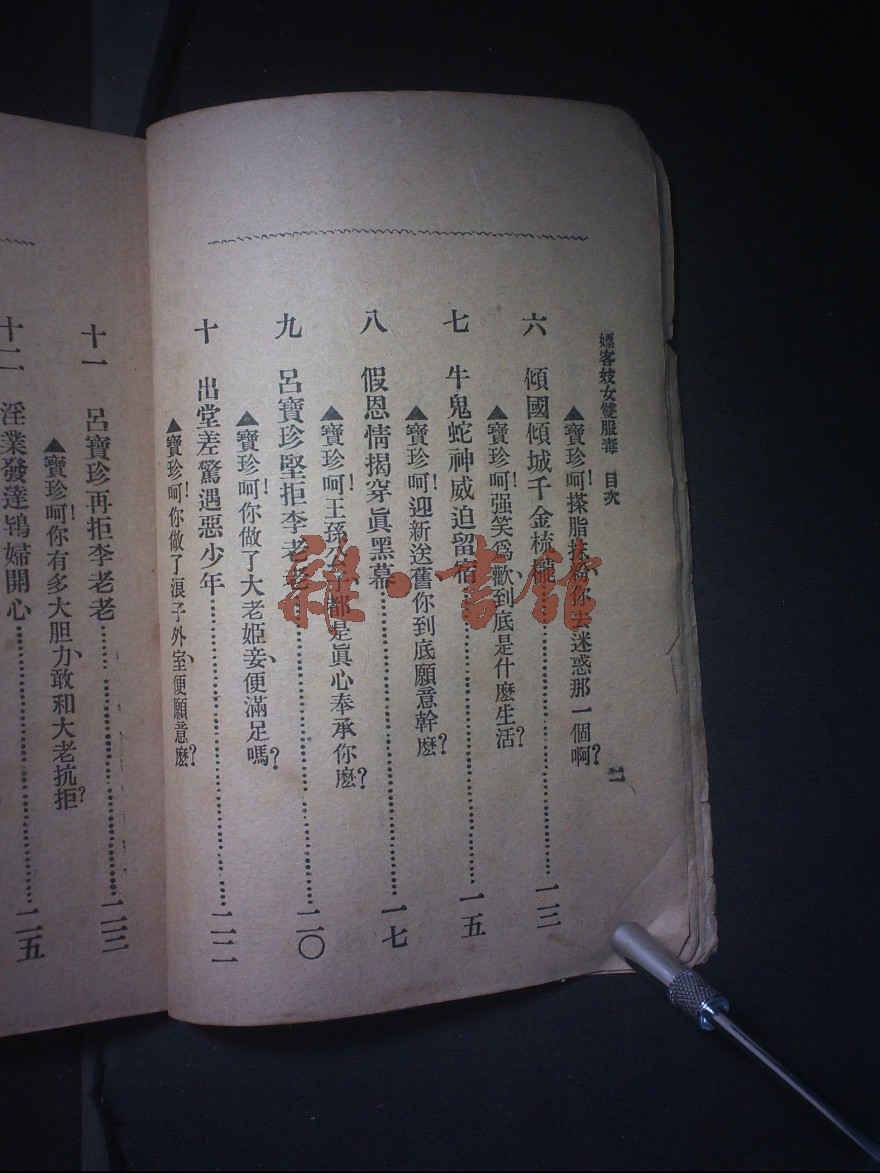 嫖客妓女雙服毒　目次
二
六　傾國傾城千金梳櫳……一三
▲寶珍呵！搽脂抹粉、你去迷惑那一個啊？
七　牛鬼蛇神威迫留宿……一五
▲寶珍呵！强笑爲歡、到底是什麽生活？
八　假恩情揭穿眞黑幕……一七
▲寶珍呵！迎新送舊你到底願意幹麽？
九　呂寶珍堅拒李老老……二〇
▲寶珍呵！王孫公子、都是眞心奉承你麽？
十　出堂差驚遇惡少年……二二
▲寶珍呵！你做了大老姬妾、便滿足嗎？
▲寶珍呵！你做了浪子外室、便願意麽？
十一　呂寶珍再拒李老老……二三
▲寶珍呵！你有多大胆力、敢和大老抗拒？
十二　淫業發達鴇婦開心……二五
雜·書館